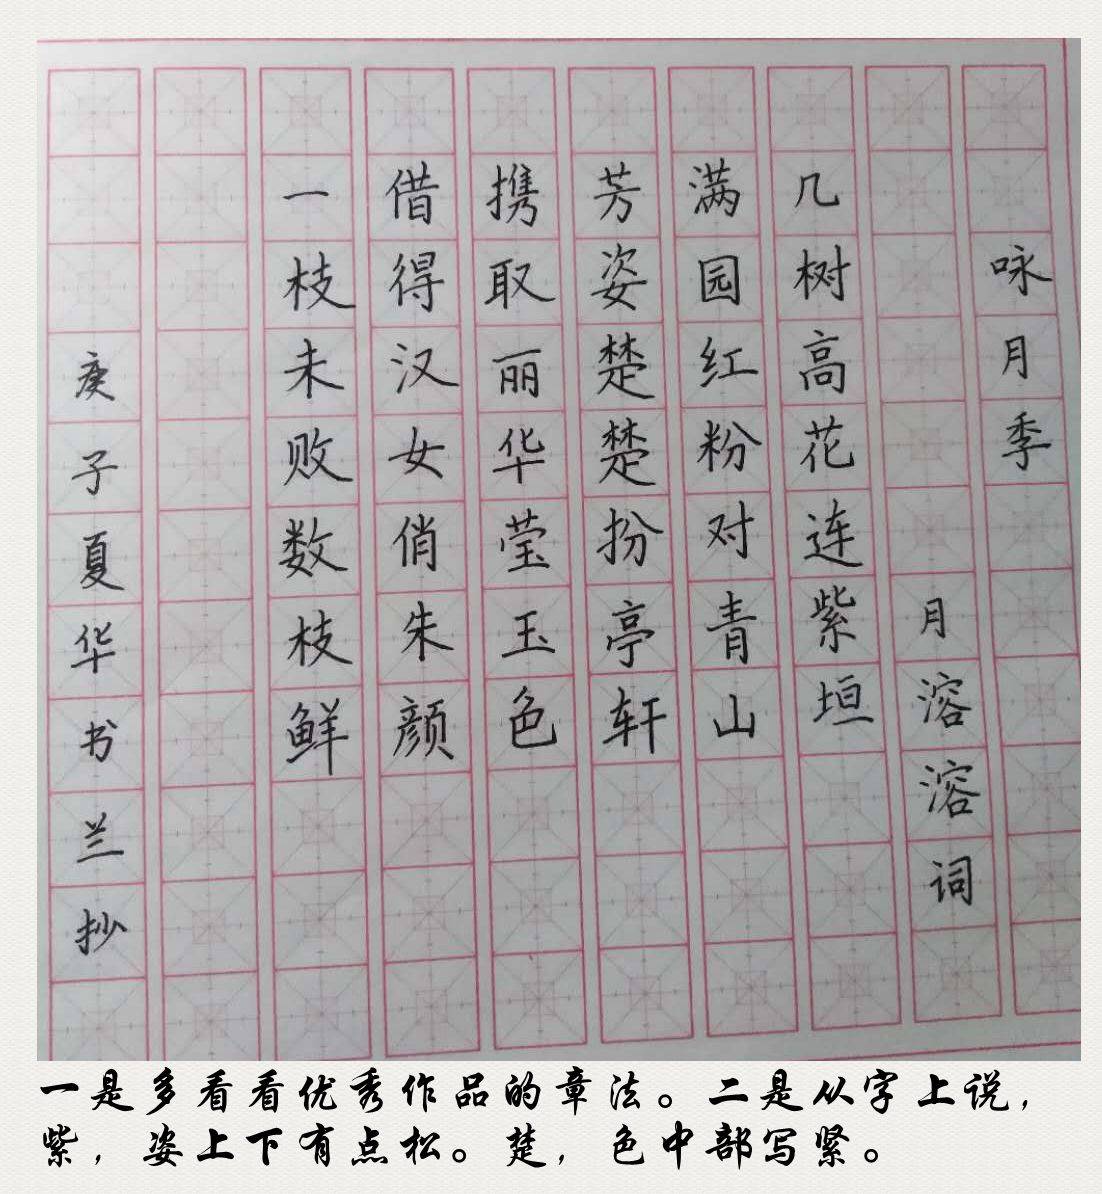 咏月季
月溶溶词
几树高花连紫垣
满园红粉对青山
芳姿楚楚扮亭轩
携取丽华莹玉色
借得汉女俏朱颜
一枝未败数枝鲜
庚子夏华书兰抄
一是多看看优秀作品的章法。二是从字上说，
紫，姿上下有点松。楚，色中部写紧。